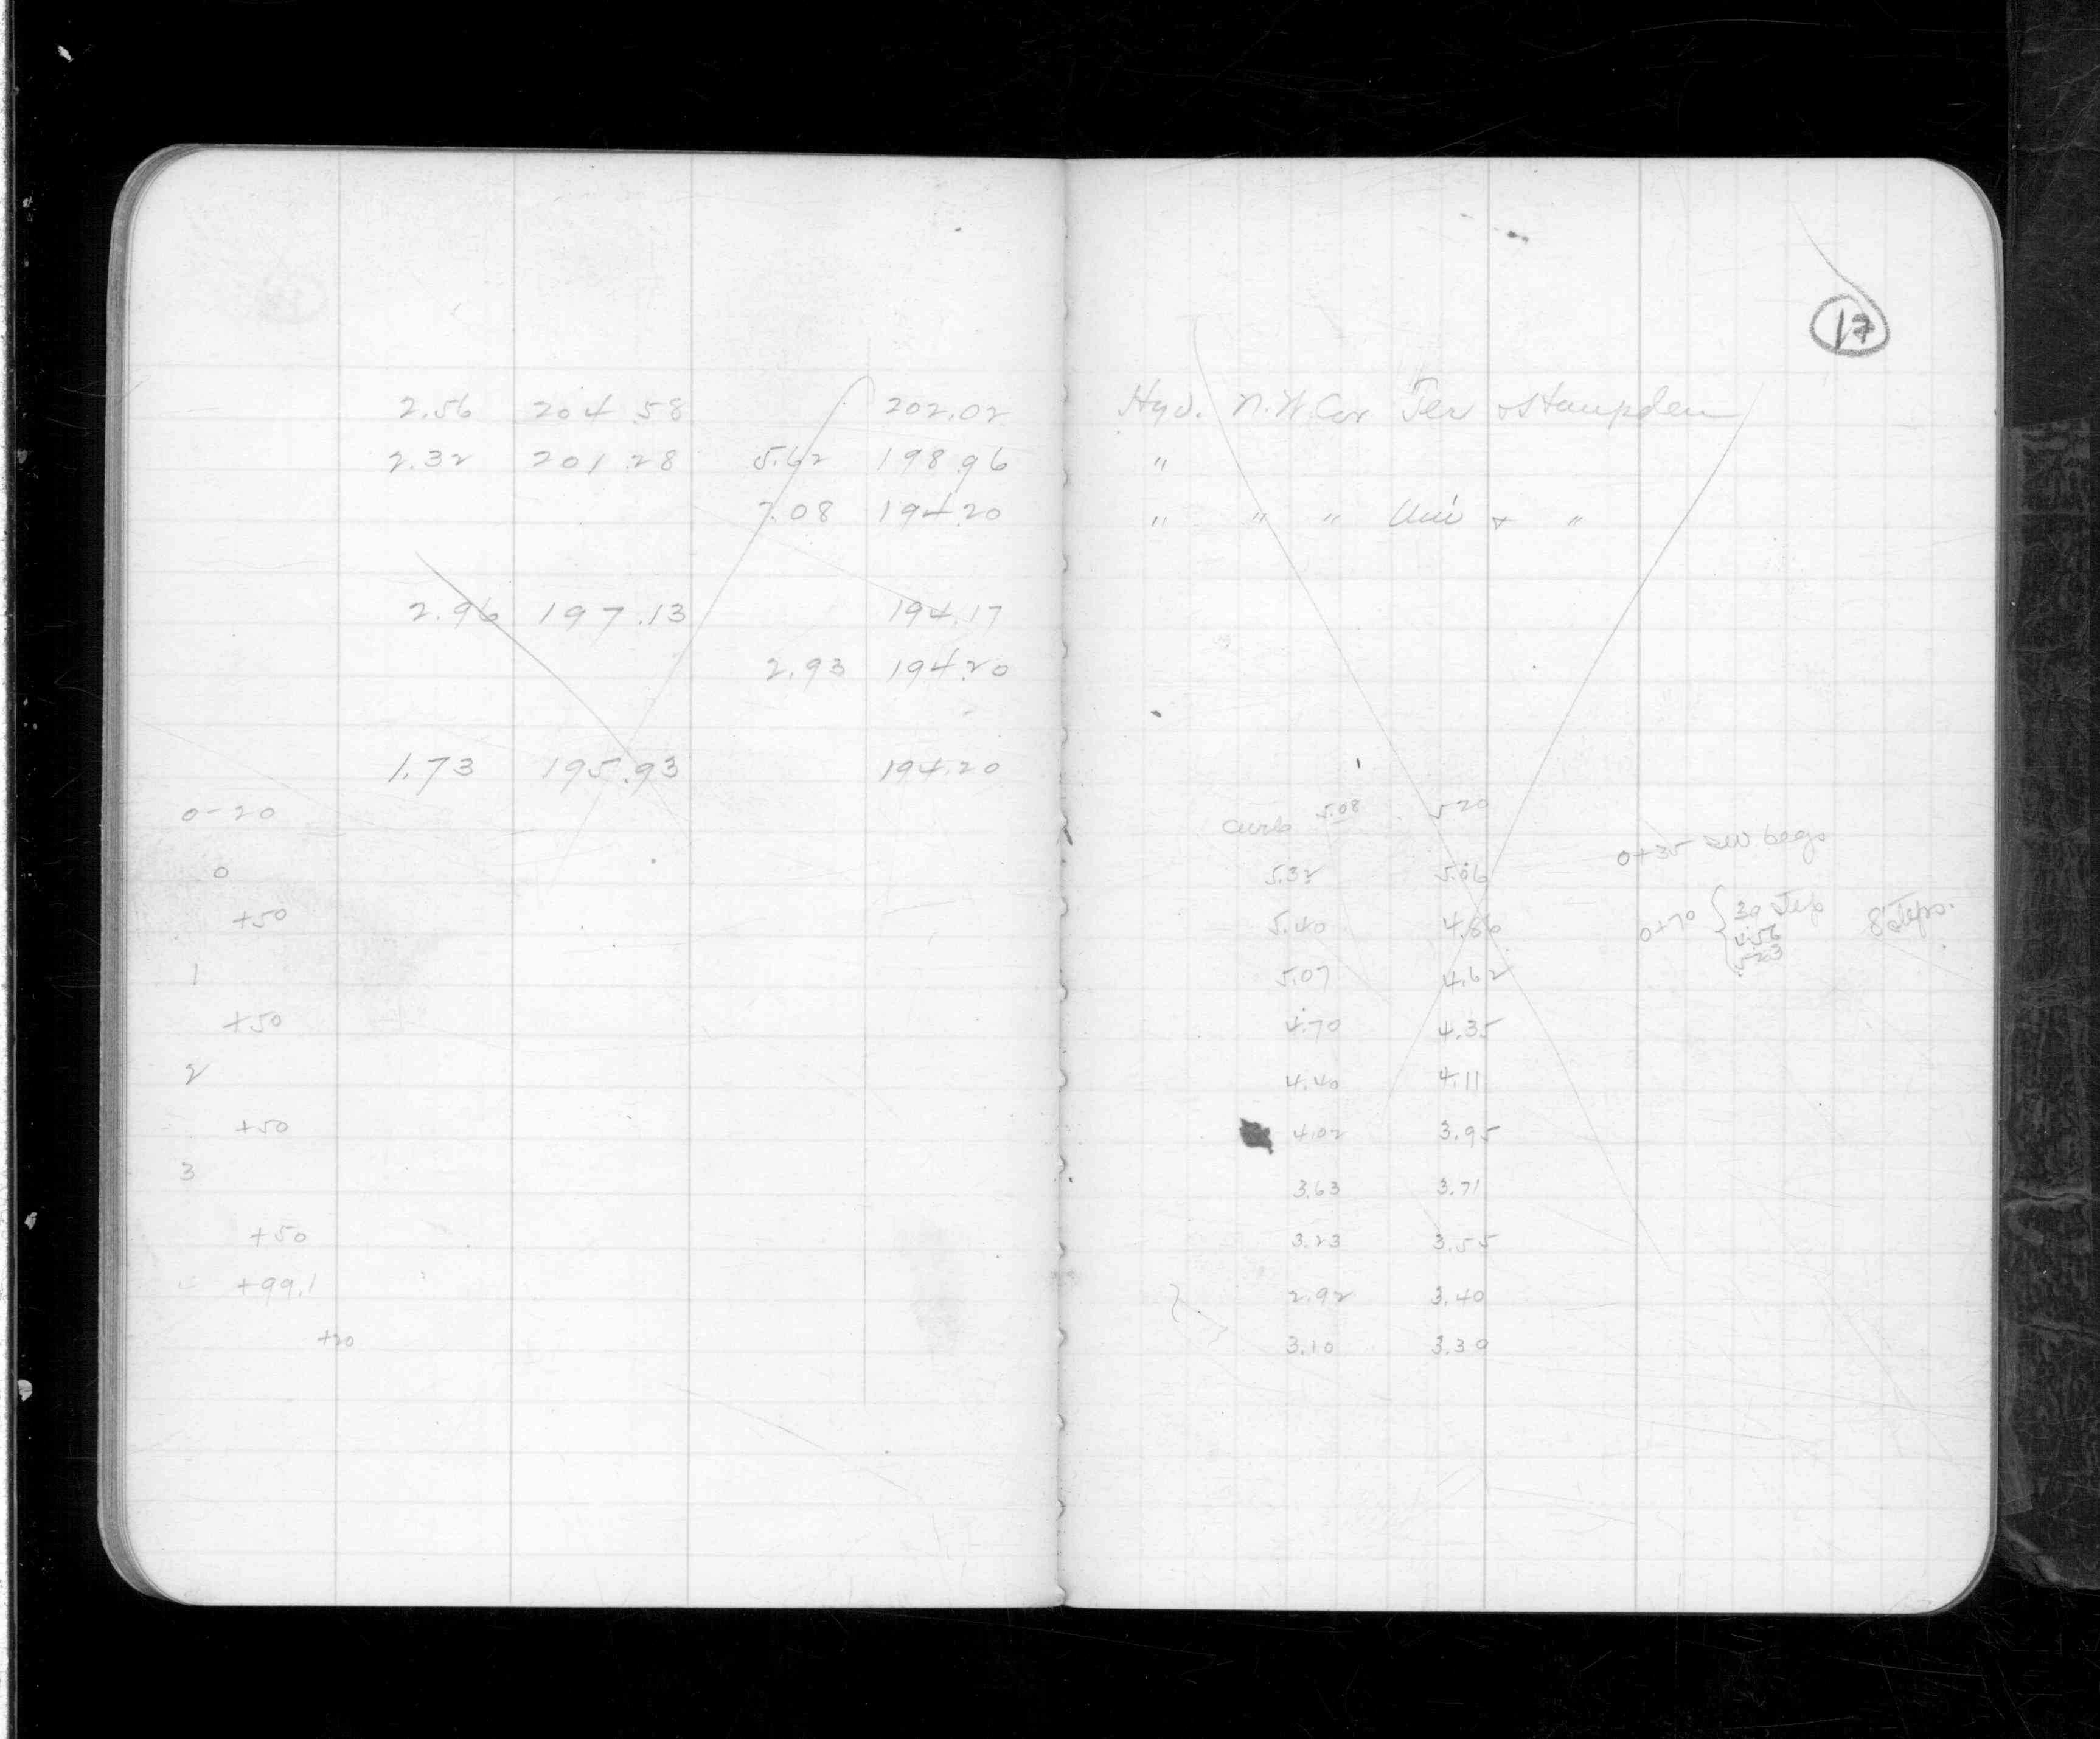 2.56 204.58 202.02
2.32 201.28 5.62 198.96
7.08 194.20
2.96 197.13 194.17
2.93 194.20
1.73 195.93 194.20
0-20
0
+50
1
+50
2
+50
3
+50
+99.1
+20
17
Hyd. N.W. Cor Ter + Hampden
"
" " " Uni + "
curb 5.08 5.20
5.32 5.06
5.40 4.86
5.07 4.62
4.70 4.35
4.40 4.11
4.02 3.95
3.63 3.71
3.23 3.55
2.92 3.40
3.10 3.30
0+35 sw begs
0+70 { step 8 steps.
4.56
5.23